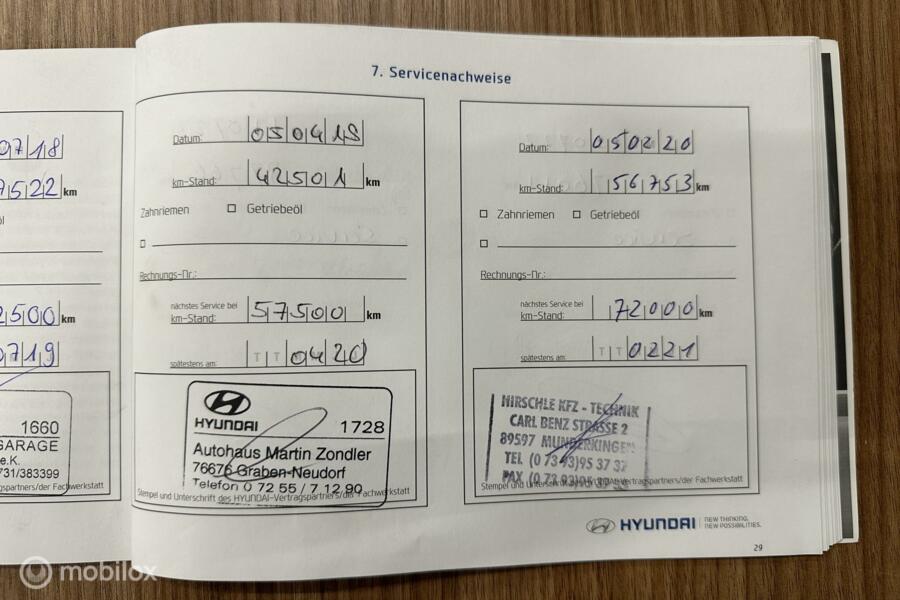 7. Servicenachweise
0718
7522 km
2500 km
0719
1660
GARAGE
e.K.
731/383399
gspartners/der Fachwerkstatt
Datum: 050419
km-Stand: 42501 km
Zahnriemen Getriebeöl
Rechnungs-Nr.:
nächstes Service bei
km-Stand: 57500 km
spätestens am: TT0420
HYUNDAI 1728
Autohaus Martin Zondler
76676 Graben-Neudorf
Telefon 0 72 55 / 7 12 90
Stempel und Unterschrift des HYUNDAI-Vertragspartners/der Fachwerkstatt
Datum: 050220
km-Stand: 56753 km
Zahnriemen Getriebeöl
Rechnungs-Nr.:
nächstes Service bei
km-Stand: 72000 km
spätestens am: TT0221
HIRSCHLE KFZ - TECHNIK
CARL BENZ STRASSE 2
89597 MUNDERKINGEN
TEL (0 73 93)95 37 37
FAX (0 73 93)95
Stempel und Unterschrift des HYUNDAI-Vertragspartners/der Fachwerkstatt
HYUNDAI NEW THINKING.
NEW POSSIBILITIES.
29
mobilox